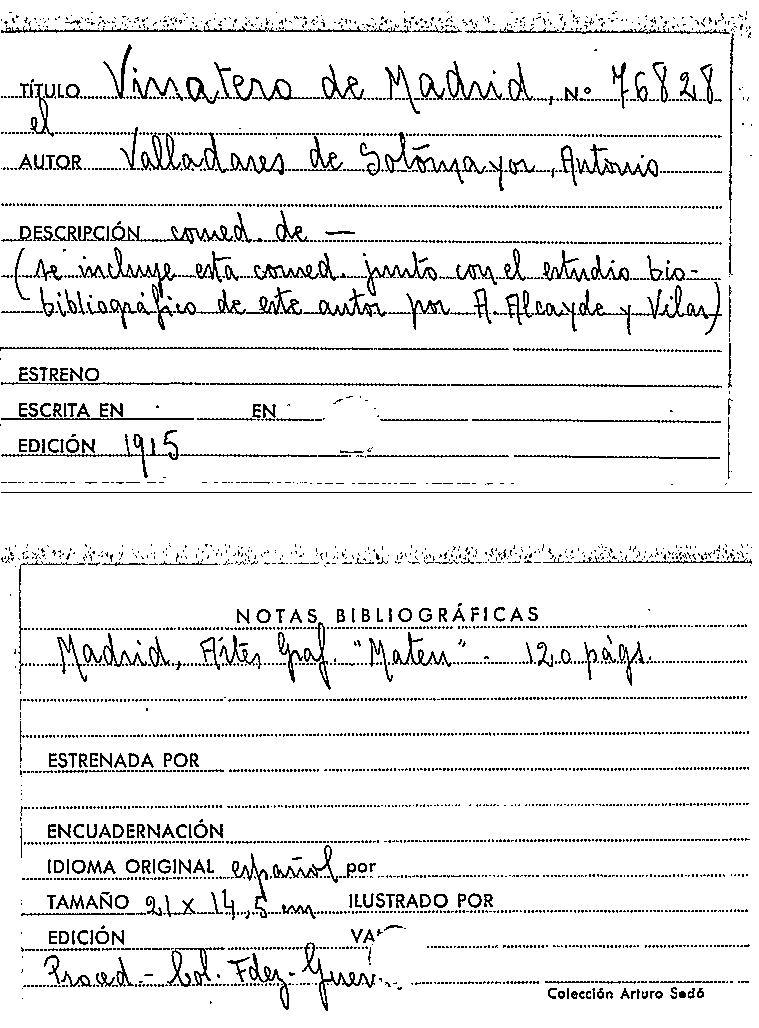 TÍTULO Vinatero de Madrid, Nº 76828
el
AUTOR Valladares de Sotomayor, Antonio
DESCRIPCIÓN comed. de —
(se incluye esta comed. junto con el estudio bio-
bibliográfico de este autor por A. Alcayde y Vilar)
ESTRENO
ESCRITA EN EN
EDICIÓN 1915
NOTAS BIBLIOGRÁFICAS
Madrid, Artes Graf. "Mateu" - 120 págs.
ESTRENADA POR
ENCUADERNACIÓN
IDIOMA ORIGINAL español por
TAMAÑO 21 x 14,5 cm ILUSTRADO POR
EDICIÓN
Proced.- Col. Fdez-
Colección Arturo Sedó